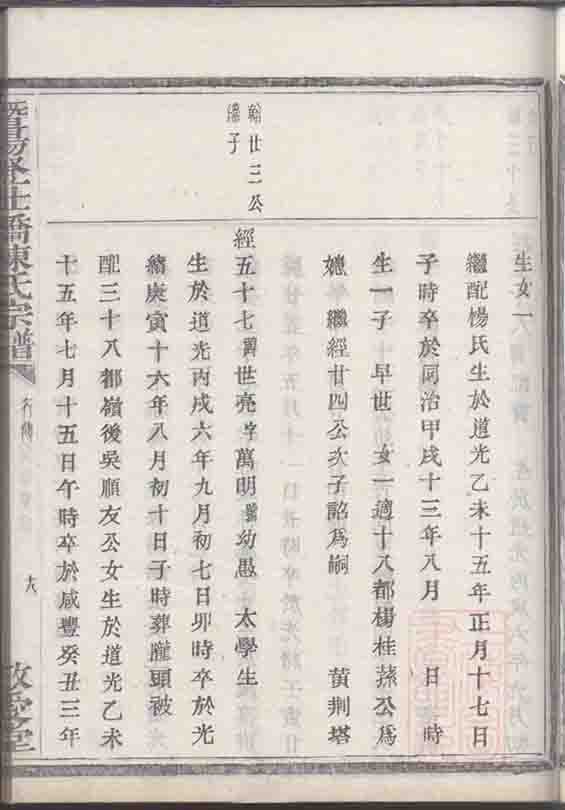 生女一
繼配楊氏生於道光乙未十五年正月十七日
子時卒於同治甲戌十三年八月　日　時
生一子　早世　女一適十八都楊桂蓀公爲
媳　繼經廿四公次子詺爲嗣　黄荆塔
翰廿三公
子
經五十七諱世亮字萬明號幼愚　太學生
生於道光丙戌六年九月初七日卯時卒於光
緒庚寅十六年八月初十日子時葬隴頭被
配三十八都嶺後吳順友公女生於道光乙未
十五年七月十五日午時卒於咸豐癸丑三年
暨陽橋陳氏宗譜
行傳
十八
敬愛堂